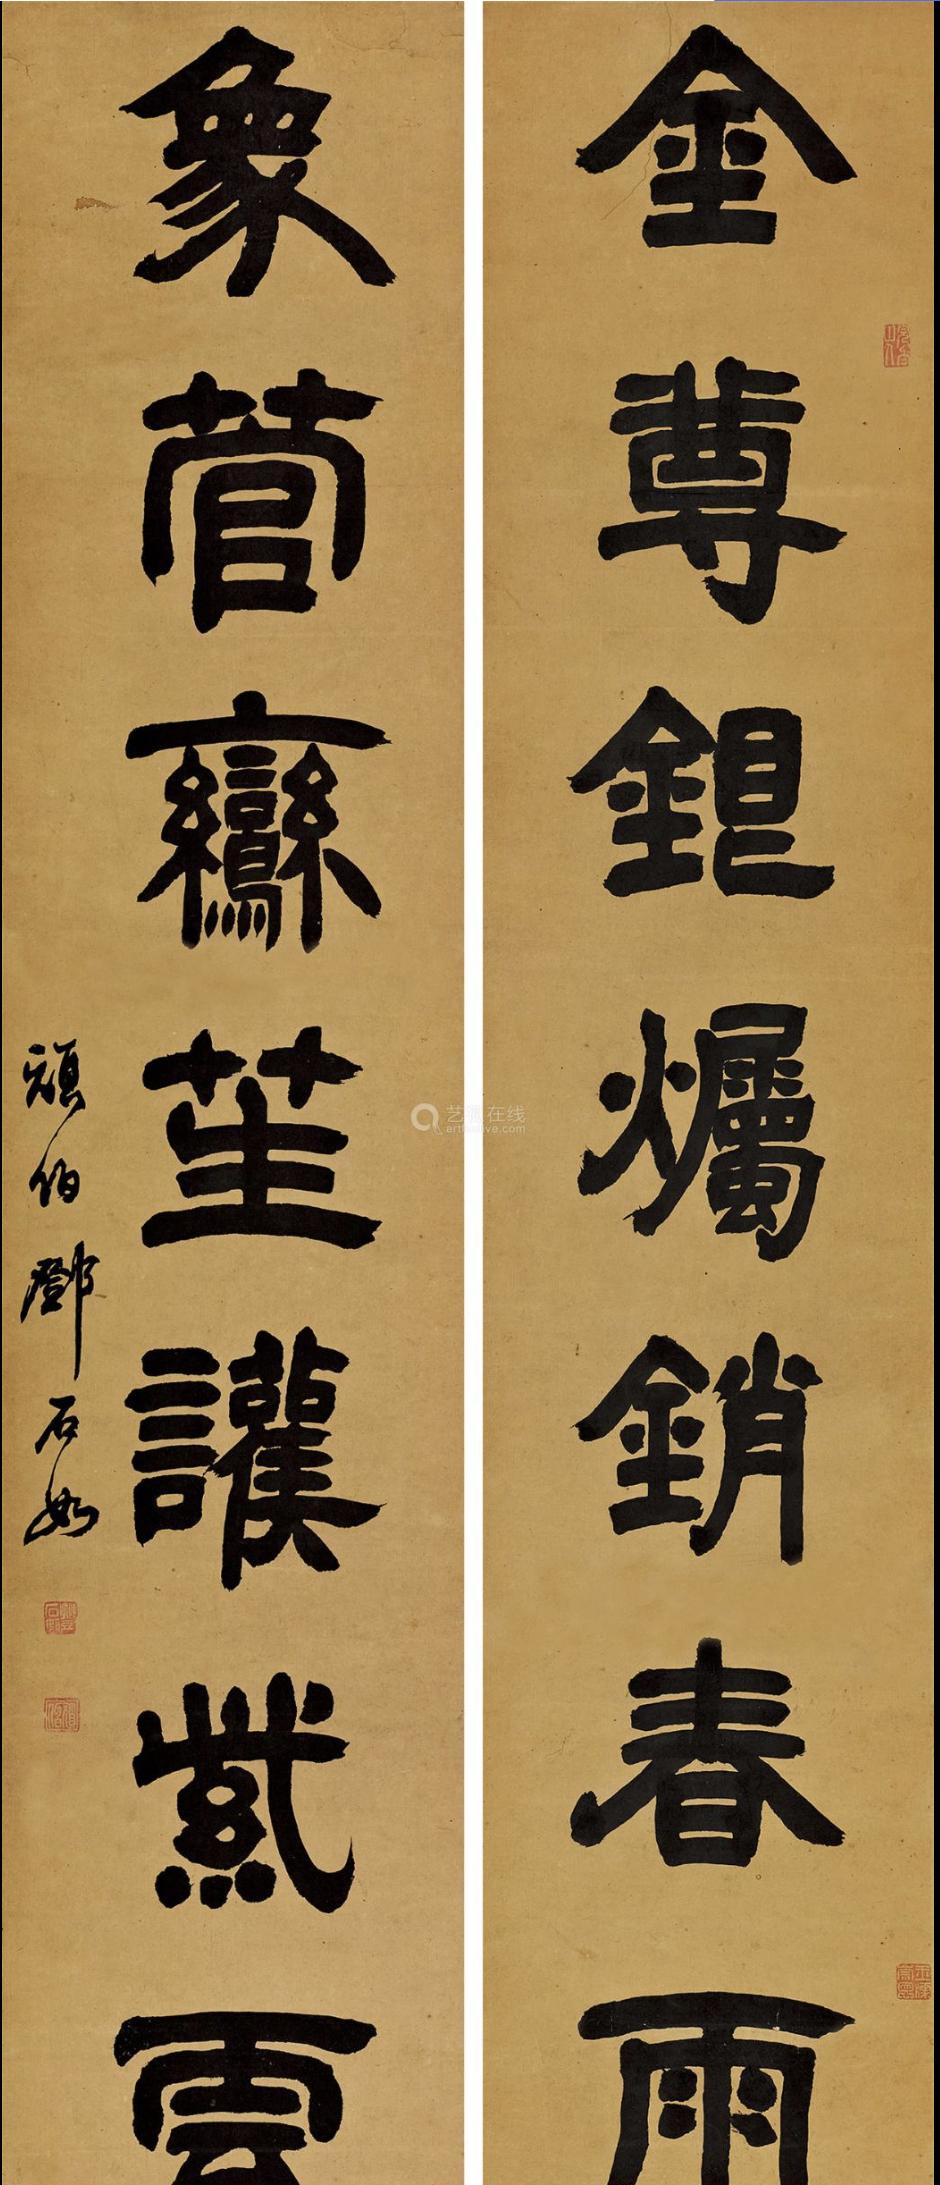 金尊銀燭銷春雨
象管鸞笙護紫雲
頑伯鄧石如
艺狐在线
artfoxlive.com